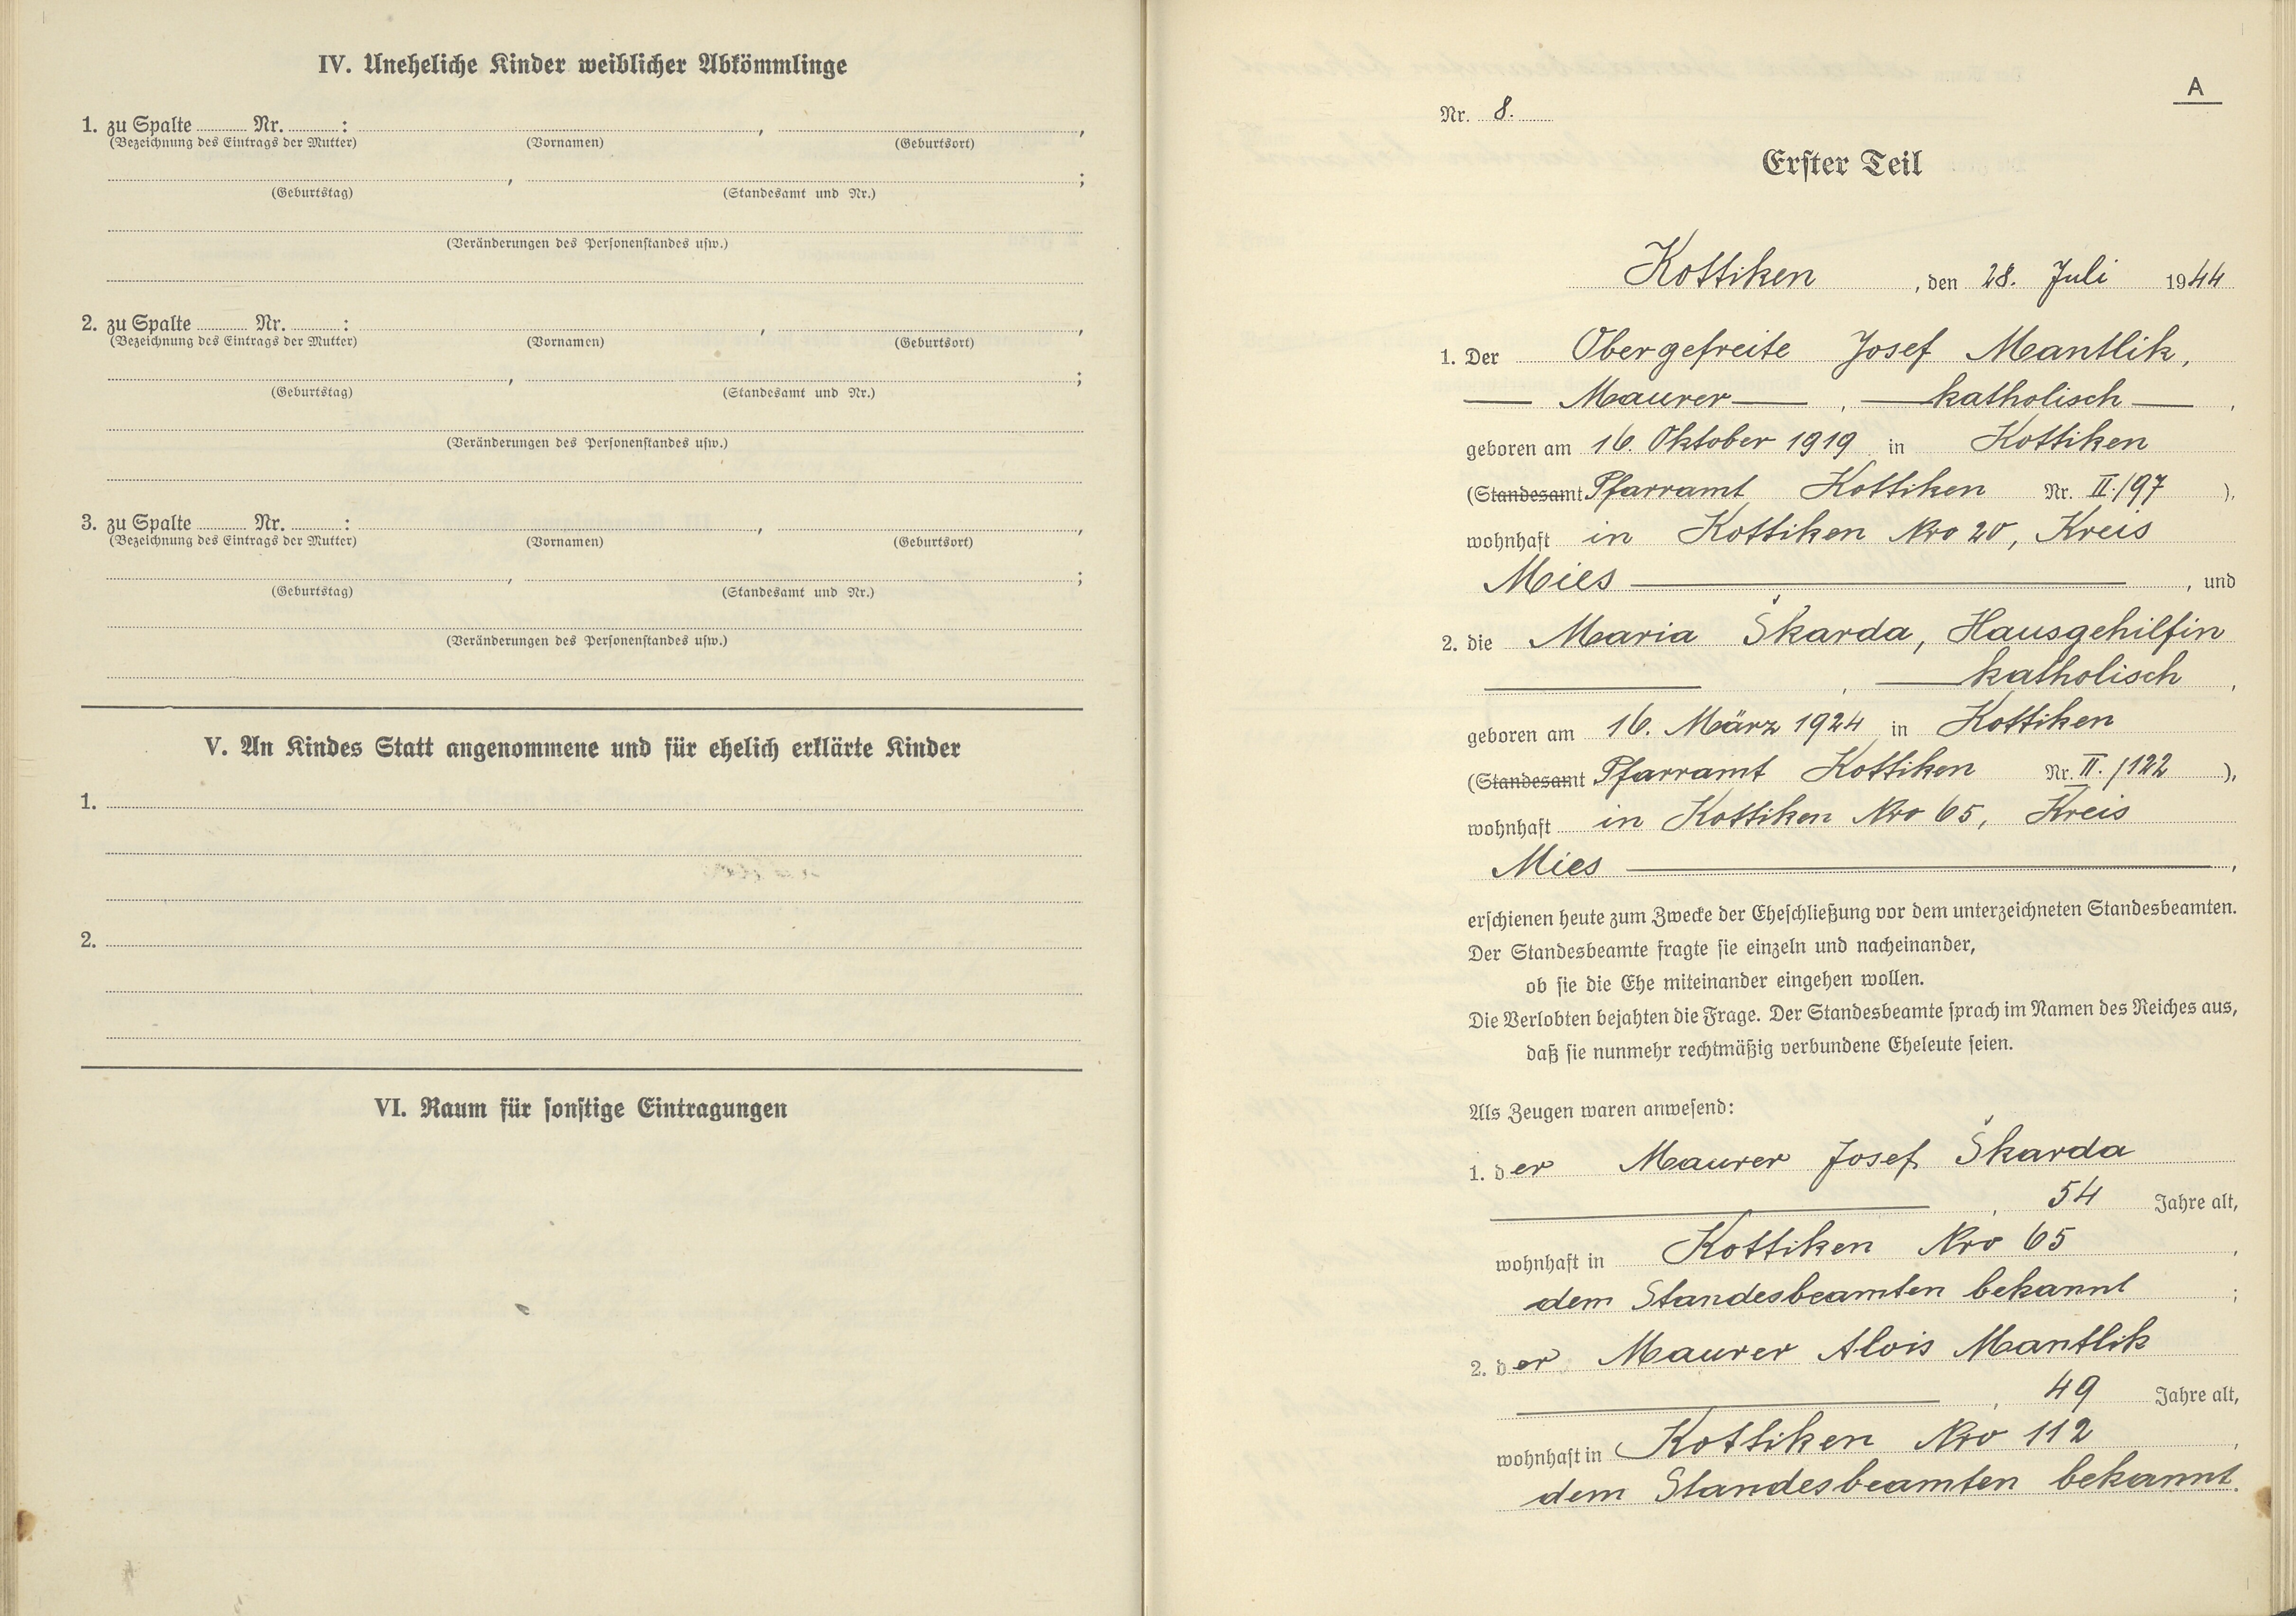 IV. Uneheliche Kinder weiblicher Abkömmlinge
1. zu Spalte ........ Nr. ........ : ........ , ........ ,
(Bezeichnung des Eintrags der Mutter) (Vornamen) (Geburtsort)
........ , ........ ;
(Geburtstag) (Standesamt und Nr.)
(Veränderungen des Personenstandes usw.)
2. zu Spalte ........ Nr. ........ : ........ , ........ ,
(Bezeichnung des Eintrags der Mutter) (Vornamen) (Geburtsort)
........ , ........ ;
(Geburtstag) (Standesamt und Nr.)
(Veränderungen des Personenstandes usw.)
3. zu Spalte ........ Nr. ........ : ........ , ........ ,
(Bezeichnung des Eintrags der Mutter) (Vornamen) (Geburtsort)
........ , ........ ;
(Geburtstag) (Standesamt und Nr.)
(Veränderungen des Personenstandes usw.)
V. An Kindes Statt angenommene und für ehelich erklärte Kinder
1.
2.
VI. Raum für sonstige Eintragungen
A
Nr. 8.
Erster Teil
Kottiken , den 28. Juli 1944
1. Der Obergefreite Josef Mantlik,
Maurer , katholisch ,
geboren am 16. Oktober 1919 in Kottiken
(Standesamt Pfarramt Kottiken Nr. II./97 ),
wohnhaft in Kottiken Nro 20, Kreis
Mies , und
2. die Maria Škarda, Hausgehilfin
, katholisch ,
geboren am 16. März 1924 in Kottiken
(Standesamt Pfarramt Kottiken Nr. II./122 ),
wohnhaft in Kottiken Nro 65, Kreis
Mies ,
erschienen heute zum Zwecke der Eheschließung vor dem unterzeichneten Standesbeamten.
Der Standesbeamte fragte sie einzeln und nacheinander,
ob sie die Ehe miteinander eingehen wollen.
Die Verlobten bejahten die Frage. Der Standesbeamte sprach im Namen des Reiches aus,
daß sie nunmehr rechtmäßig verbundene Eheleute seien.
Als Zeugen waren anwesend:
1. der Maurer Josef Škarda
, 54 Jahre alt,
wohnhaft in Kottiken Nro 65 ,
dem Standesbeamten bekannt ;
2. der Maurer Alois Mantlik
, 49 Jahre alt,
wohnhaft in Kottiken Nro 112 ,
dem Standesbeamten bekannt.